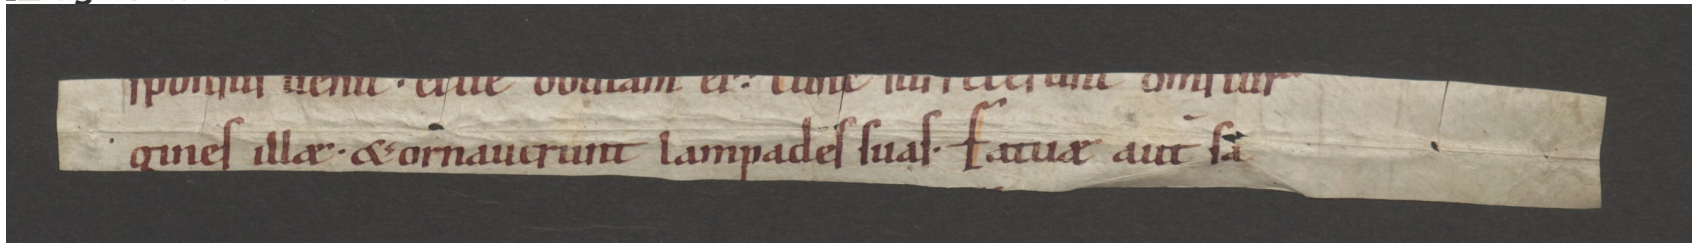 sponsus uenit · exite obuiam ei : tunc surrexerunt oms̄ uir
gines illæ · & ornauerunt lampades suas · Fatuæ aut̄ sa